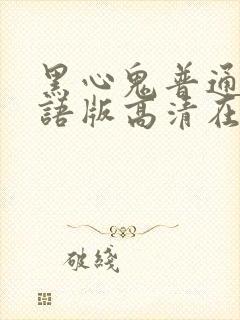 黑心鬼普通
語版高清在
破綫